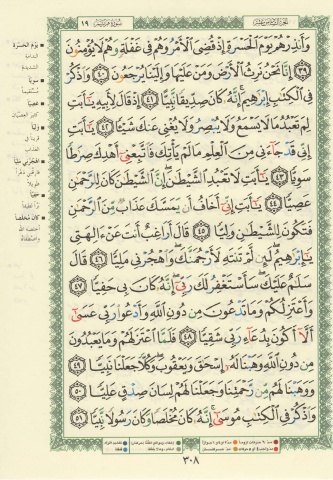 سورة مريم ١٩
وَأَنذِرْهُمْ يَوْمَ الْحَسْرَةِ إِذْ قُضِيَ الْأَمْرُ وَهُمْ فِي غَفْلَةٍ وَهُمْ لَا يُؤْمِنُونَ
﴿٣٩﴾ إِنَّا نَحْنُ نَرِثُ الْأَرْضَ وَمَنْ عَلَيْهَا وَإِلَيْنَا يُرْجَعُونَ ﴿٤٠﴾ وَاذْكُرْ
فِي الْكِتَابِ إِبْرَاهِيمَ إِنَّهُ كَانَ صِدِّيقًا نَّبِيًّا ﴿٤١﴾ إِذْ قَالَ لِأَبِيهِ يَا أَبَتِ
لِمَ تَعْبُدُ مَا لَا يَسْمَعُ وَلَا يُبْصِرُ وَلَا يُغْنِي عَنكَ شَيْئًا ﴿٤٢﴾ يَا أَبَتِ
إِنِّي قَدْ جَاءَنِي مِنَ الْعِلْمِ مَا لَمْ يَأْتِكَ فَاتَّبِعْنِي أَهْدِكَ صِرَاطًا
سَوِيًّا ﴿٤٣﴾ يَا أَبَتِ لَا تَعْبُدِ الشَّيْطَانَ إِنَّ الشَّيْطَانَ كَانَ لِلرَّحْمَٰنِ
عَصِيًّا ﴿٤٤﴾ يَا أَبَتِ إِنِّي أَخَافُ أَن يَمَسَّكَ عَذَابٌ مِّنَ الرَّحْمَٰنِ
فَتَكُونَ لِلشَّيْطَانِ وَلِيًّا ﴿٤٥﴾ قَالَ أَرَاغِبٌ أَنتَ عَنْ آلِهَتِي
يَا إِبْرَاهِيمُ لَئِن لَّمْ تَنتَهِ لَأَرْجُمَنَّكَ وَاهْجُرْنِي مَلِيًّا ﴿٤٦﴾ قَالَ
سَلَامٌ عَلَيْكَ سَأَسْتَغْفِرُ لَكَ رَبِّي إِنَّهُ كَانَ بِي حَفِيًّا ﴿٤٧﴾
وَأَعْتَزِلُكُمْ وَمَا تَدْعُونَ مِن دُونِ اللَّهِ وَأَدْعُو رَبِّي عَسَىٰ
أَلَّا أَكُونَ بِدُعَاءِ رَبِّي شَقِيًّا ﴿٤٨﴾ فَلَمَّا اعْتَزَلَهُمْ وَمَا يَعْبُدُونَ
مِن دُونِ اللَّهِ وَهَبْنَا لَهُ إِسْحَاقَ وَيَعْقُوبَ وَكُلًّا جَعَلْنَا نَبِيًّا ﴿٤٩﴾
وَوَهَبْنَا لَهُم مِّن رَّحْمَتِنَا وَجَعَلْنَا لَهُمْ لِسَانَ صِدْقٍ عَلِيًّا ﴿٥٠﴾
وَاذْكُرْ فِي الْكِتَابِ مُوسَىٰ إِنَّهُ كَانَ مُخْلَصًا وَكَانَ رَسُولًا نَّبِيًّا ﴿٥١﴾
يَوْمَ الْحَسْرَةِ
الندامة
الشديدة
سَوِيًّا
مستقيماً
عَصِيًّا
كثير العصيان
وَلِيًّا
قريناً في
العذاب
وَاهْجُرْنِي مَلِيًّا
حَفِيًّا
كَانَ مُخْلَصًا
أخلصه الله
واصطفاه
٣٠٨